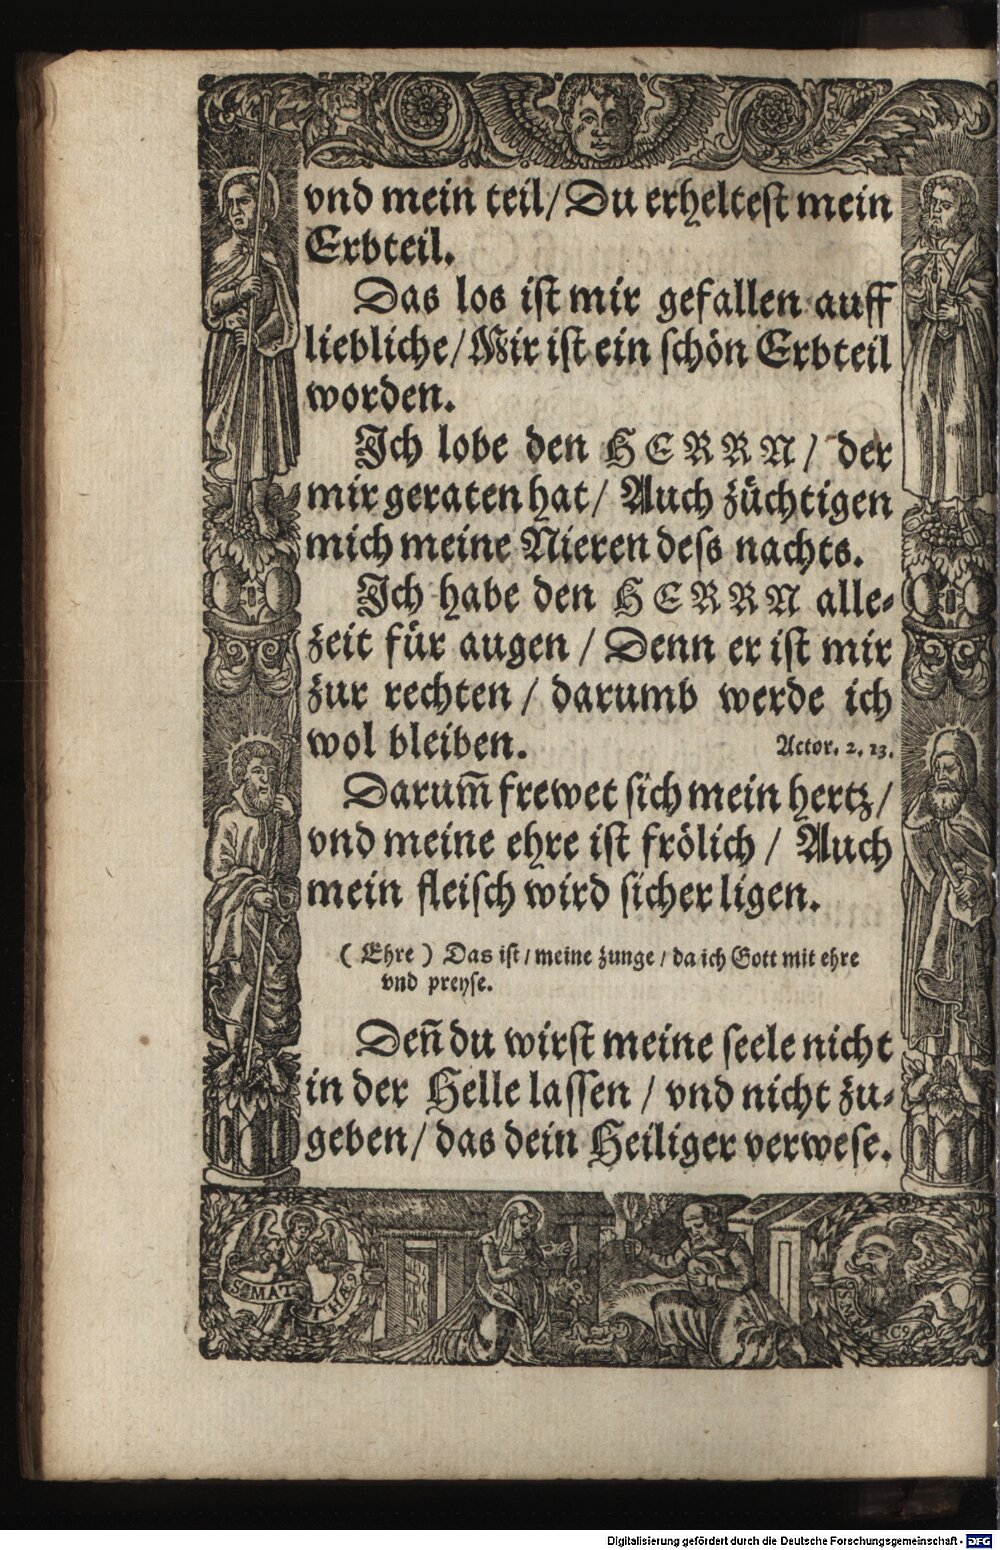 vnd mein teil/ Du erheltest mein
Erbteil.
Das los ist mir gefallen auff
liebliche/ Mir ist ein schön Erbteil
worden.
Ich lobe den HERRN/ der
mir geraten hat/ Auch züchtigen
mich meine Nieren dess nachts.
Ich habe den HERRN alle-
zeit für augen / Denn er ist mir
zur rechten / darumb werde ich
wol bleiben.
Actor. 2. 13.
Darum̃ frewet sich mein hertz/
vnd meine ehre ist frölich / Auch
mein fleisch wird sicher ligen.
( Ehre ) Das ist / meine zunge / da ich Gott mit ehre
vnd preyse.
Den̄ du wirst meine seele nicht
in der Helle lassen / vnd nicht zu-
geben/ das dein Heiliger verwese.
S. MAT THÆ
Digitalisierung gefördert durch die Deutsche Forschungsgemeinschaft - DFG